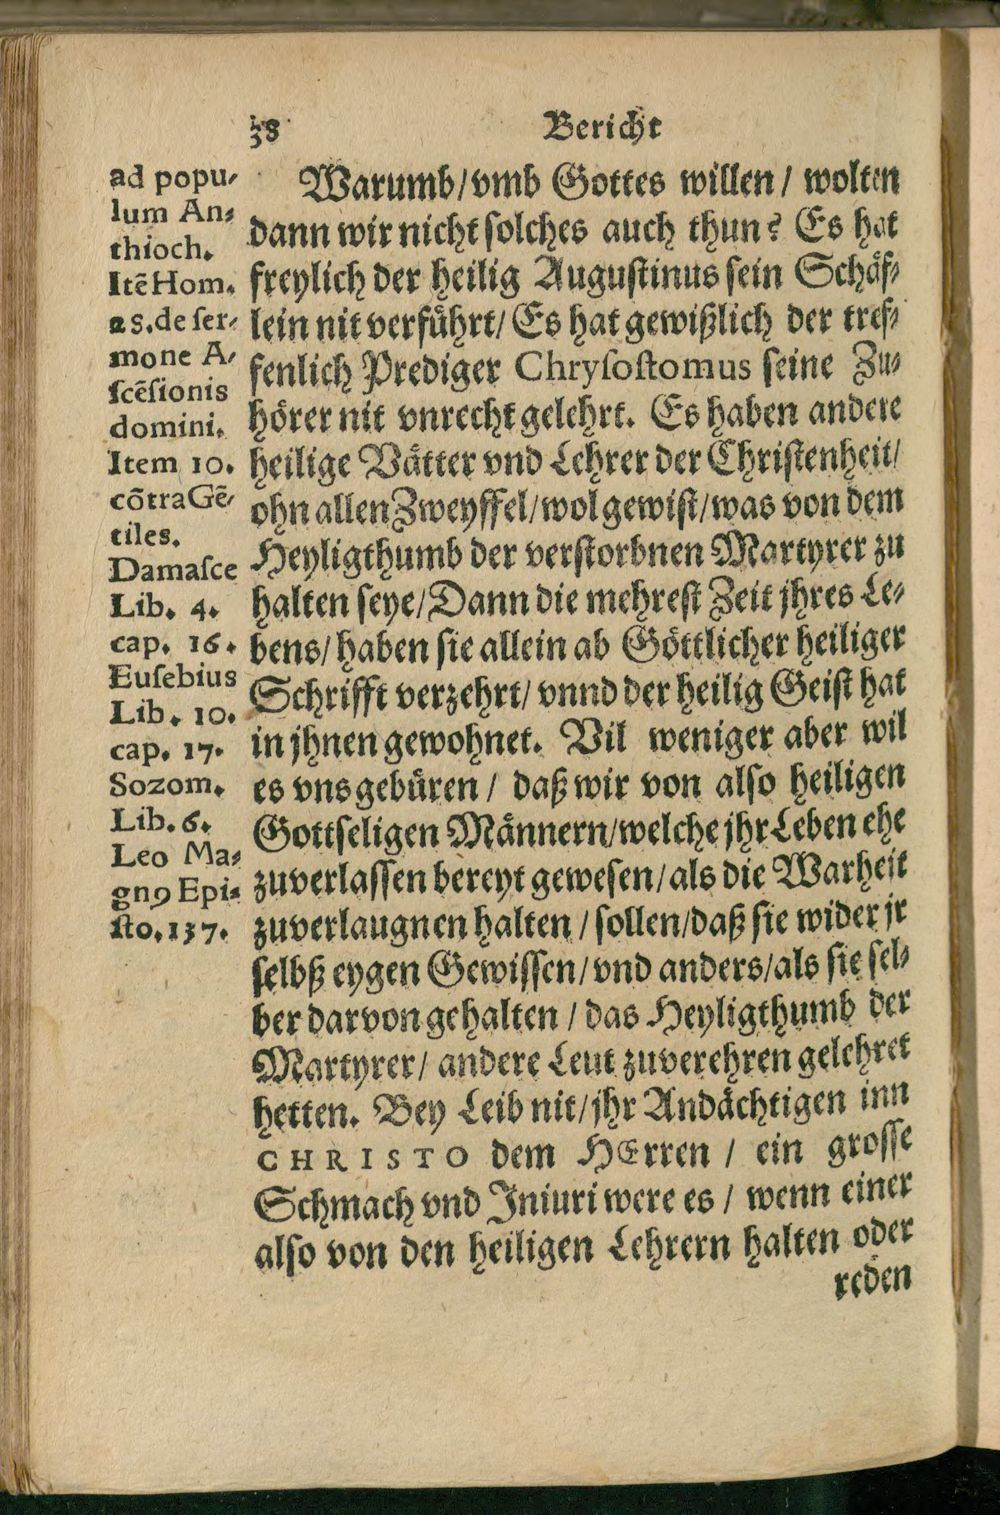 38 Bericht
ad popu⸗
lum An⸗
thioch.
Itẽ Hom.
25. de ſer⸗
mone A⸗
ſcẽſionis
domini.
Item 10.
cõtra Gẽ⸗
tiles.
Damaſce
Lib. 4.
cap. 16.
Euſebius
Lib. 10.
cap. 17.
Sozom.
Lib. 6.
Leo Ma⸗
gnꝰ Epi⸗
ſto. 137.
Warumb/ vmb Gottes willen / wolten
dann wir nicht ſolches auch thun? Es hat
freylich der heilig Auguſtinus ſein Schäf⸗
lein nit verführt/ Es hat gewißlich der tref⸗
fenlich Prediger Chryſoſtomus ſeine Zu⸗
hörer nit vnrecht gelehrt. Es haben andere
heilige Vätter vnd Lehrer der Chriſtenheit/
ohn allen Zweyffel/ wol gewiſt/ was von dem
Heyligthumb der verſtorbnen Martyrer zu
halten ſeye/ Dann die mehreſt Zeit jhres Le⸗
bens/ haben ſie allein ab Göttlicher heiliger
Schrifft verzehrt/ vnnd der heilig Geiſt hat
in jhnen gewohnet. Vil weniger aber wil
es vns gebüren / daß wir von alſo heiligen
Gottſeligen Männern/ welche jhr Leben ehe
zuverlaſſen bereyt geweſen/ als die Warheit
zuverlaugnen halten / ſollen/ daß ſie wider jr
ſelbß eygen Gewiſſen/ vnd anders/ als ſie ſel⸗
ber darvon gehalten / das Heyligthumb der
Martyrer/ andere Leut zuverehren gelehret
hetten. Bey Leib nit/ jhr Andächtigen inn
CHRISTO dem HErren / ein groſſe
Schmach vnd Iniuri were es / wenn einer
alſo von den heiligen Lehrern halten oder
reden